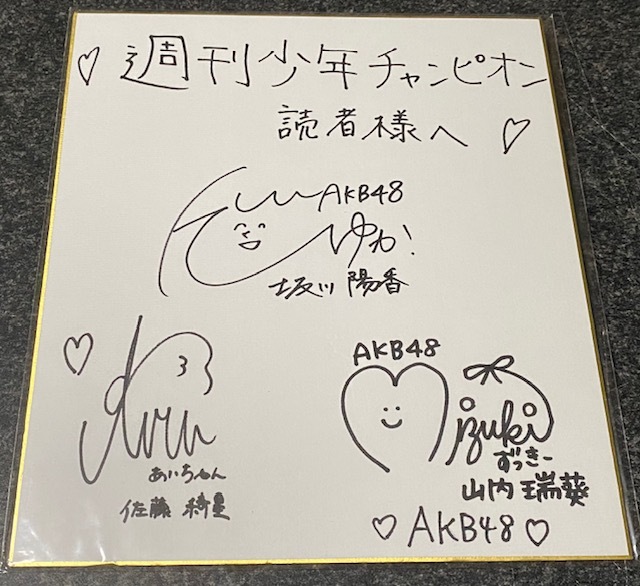 ♡ 週刊少年チャンピオン
読者様へ ♡
AKB48
ひゆか!
坂川 陽香
♡
Airi
あいちゃん
佐藤 綺星
AKB48
mizuki
ずっきー
山内 瑞葵
♡ AKB48 ♡